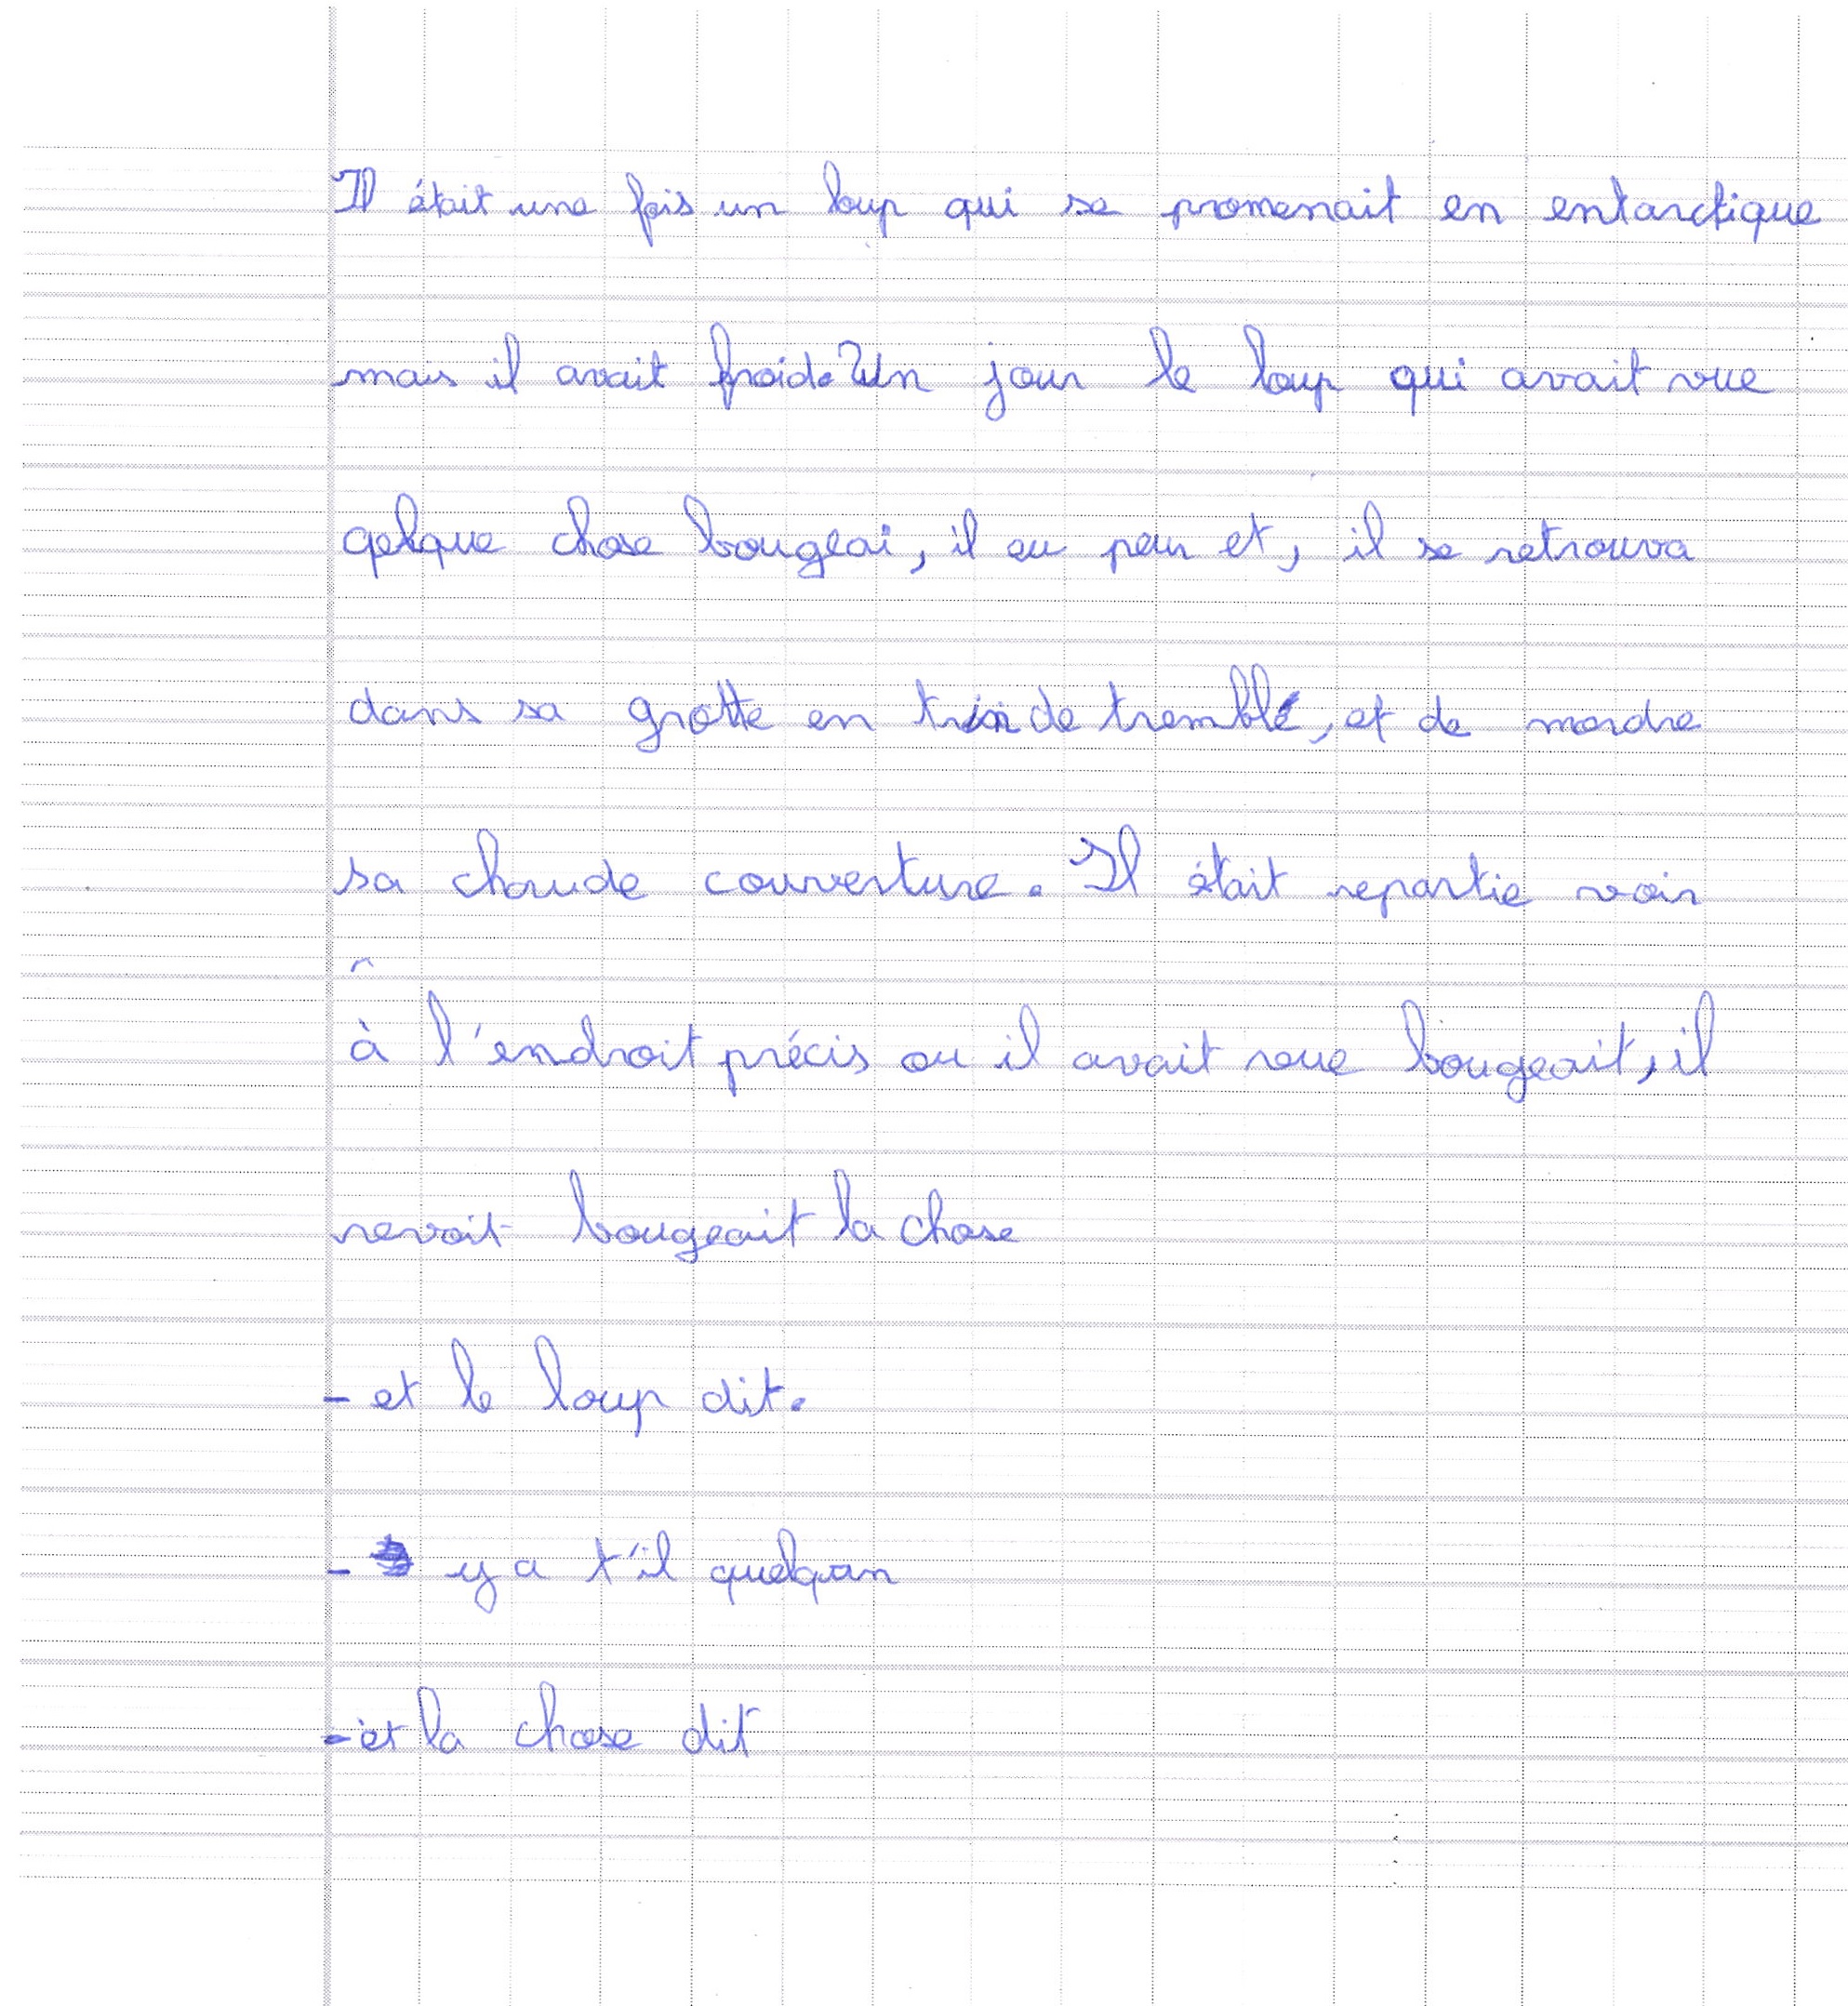 Il était une fois un loup qui se promenait en entarctique
mais il avait froid. Un jour le loup qui avait vue
qelque chose bougeai, il eu peur et, il se retrouva
dans sa grotte en trin de tremblé, et de mordre
sa chaude couverture. Il était repartie voir
à l'endroit précis ou il avait vue bougeait, il
revoit bougeait la chose
- et le loup dit.
- y a t'il quelqun
- et la chose dit